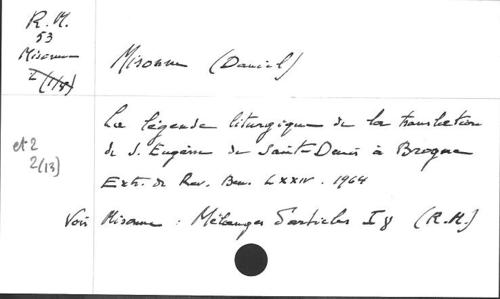 R.M.
53
Misonne
2 (1/8)
Misonne (Daniel)
La légende liturgique de la translation
de S. Eugène de Saint-Denis à Brogne
et 2
2(13)
Extr. de Rev. Ben. LXXIV. 1964
Voir Misonne : Mélanges d'articles I 8 (R.M.)